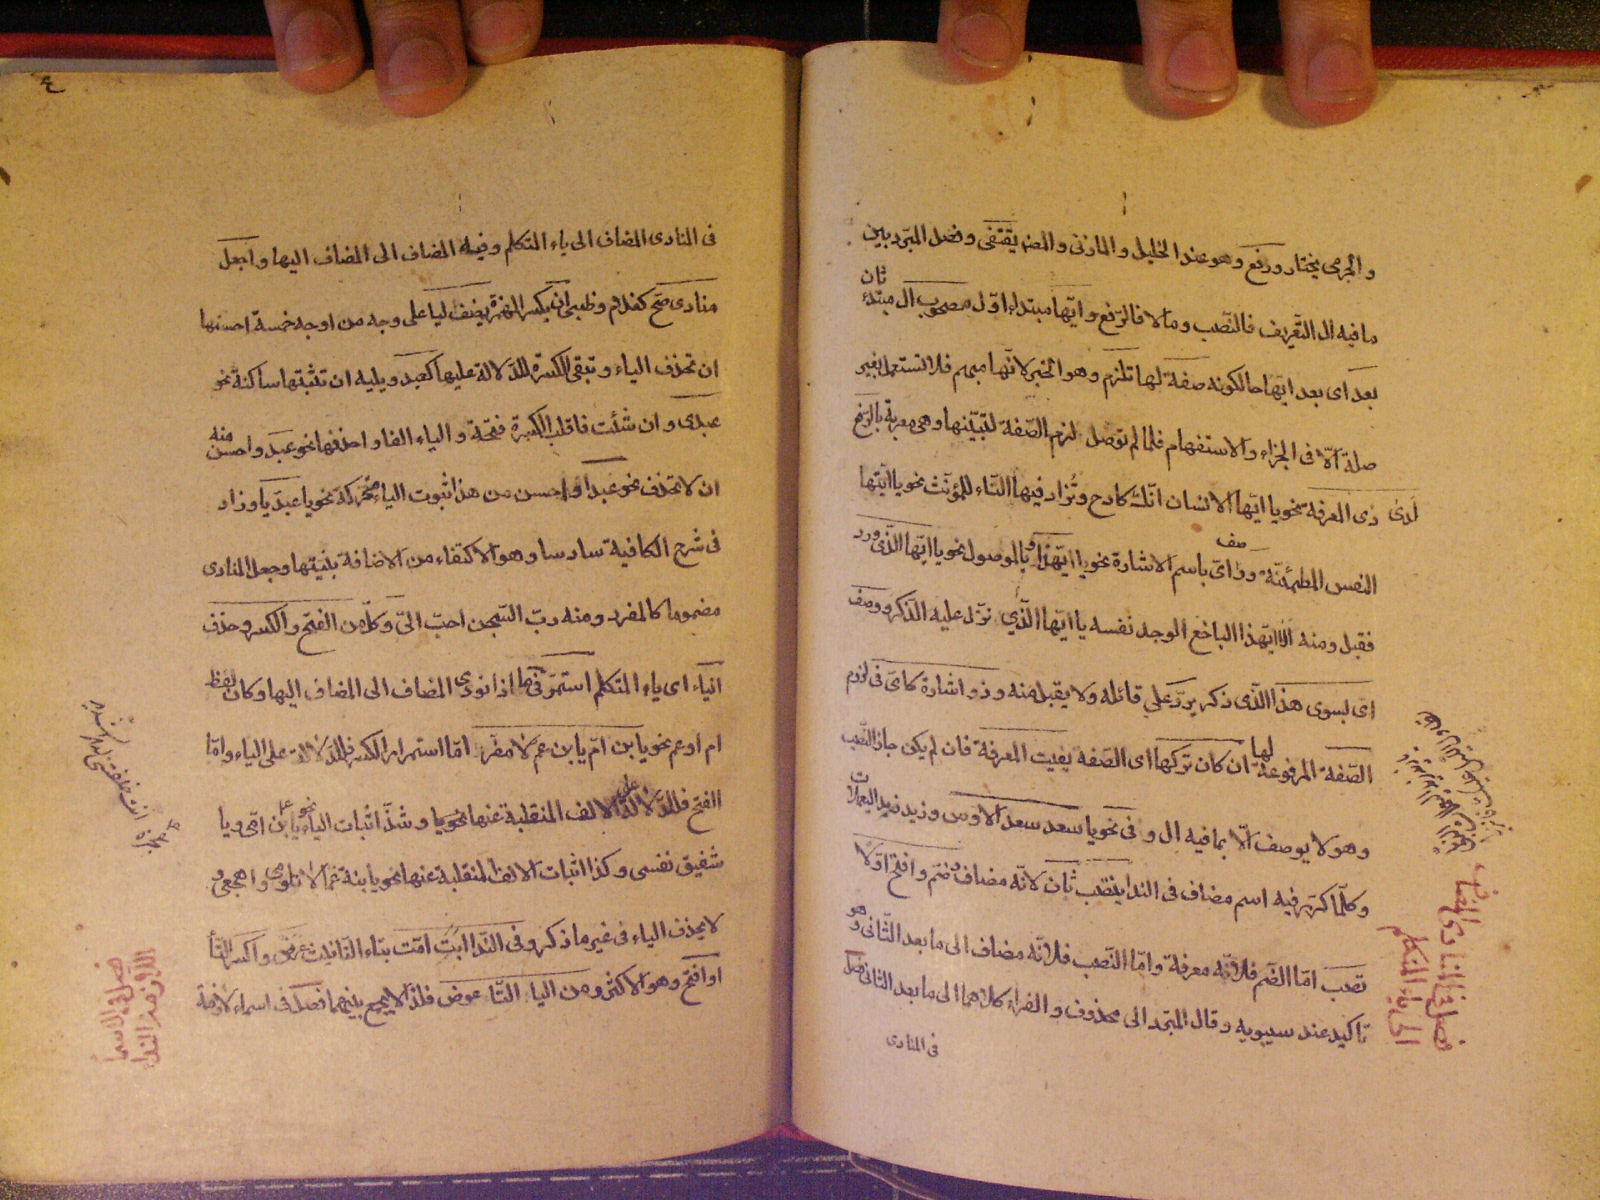 والجرمى يختار ورفع وهو عند الخليل والمازنى والمص يقتفى وفصل المبرد بين
ما فيه ال التعريف فالنصب وما لا فالرفع وايها مبتداء اول مصحوب ال مبتدء
ثان
بعد اى بعد ايها حالكونه صفة لها تلزم وهو الخبر لانها مبهم فلا تستعمل بغير
صلة الا فى الجزاء والاستفهام فلما لم توصل لزم الصفة لتبينها وهى معربة بالرفع
لدى ذى المعرفه نحو يا ايها الانسان انك كادح وتزاد فيها التاء للمؤنث نحو يا ايتها
النفس المطمئنة وذاى باسم الاشارة نحو يا ايهذا وبالموصول نحو يا ايها الذى ورد
صف
فقبل ومنه الا ايهذا الباخع الوجد نفسه يا ايها الذي نزل عليه الذكر ووصف
اى بسوى هذا الذى ذكر يرد على قائله ولا يقبل منه وذو اشارة كاى فى لزوم
الصفة المرفوعة لها ان كان تركها اى الصفة يفيت المعرفة فان لم يكن جاز النصب
وهو لا يوصف الا بما فيه ال و فى نحو يا سعد سعد الاوس وزيد زيد اليعملات
وكلما كرر فيه اسم مضاف فى الندا ينتصب ثان لانه مضاف وضم وافتح اولا
تصب اما الضم فلانه معرفة واما النصب فلانه مضاف الى ما بعد الثانى وهو
تاكيد عند سيبويه وقال المبرد الى محذوف والفراء كلاهما الى ما بعد الثانى فصل
فى المنادى
فصل فى المنادى المضاف
الى ياء المتكلم
٤
فى المنادى المضاف الى ياء المتكلم وفيه المضاف الى المضاف اليها واجعل
منادى صح كغلام وظبى ان يكسر الهمزة يضف ليا على وجه من اوجه خمسة احسنها
ان تحذف الياء وتبقى الكسرة للدلالة عليها كعبد ويليه ان تثبتها ساكنة نحو
عبدى وان شئت فاقلب الكسرة فتحة والياء الفا واحذفها نحو عبد واحسن منه
ان لا تحذف نحو عبدا واحسن من هذا ثبوت الياء متحركة نحو يا عبديا وزاد
فى شرح الكافية سادسا وهو الاكتفاء من الاضافة بنيتها وجعل المنادى
مضموما كالمفرد ومنه رب السجن احب الى وكل من الفتح والكسر وحذف
الياء اى ياء المتكلم استمر فيما اذا نودى المضاف الى المضاف اليها وكان لفظ
ام او عم نحو يا بن ام يا بن عم لا مفر اما استمرار الكسر فللدلالة على الياء واما
الفتح فللدلالة على الالف المنقلبة عنها نحو يا وشذ اثبات الياء نحو يا بن امى ويا
شقيق نفسى وكذا اثبات الالف المنقلبة عنها نحو يا بنة عما لا تلومى واهجعى و
لا يحذف الياء فى غير ما ذكر وفى الندا ابت امت بتاء التانيث عرض واكسر التا
او افتح وهو الاكثر ومن الياء التا عوض فلذا لا يجمع بينهما فصل فى اسماء لازمة
فصل فى الاسما
اللازمة الندا